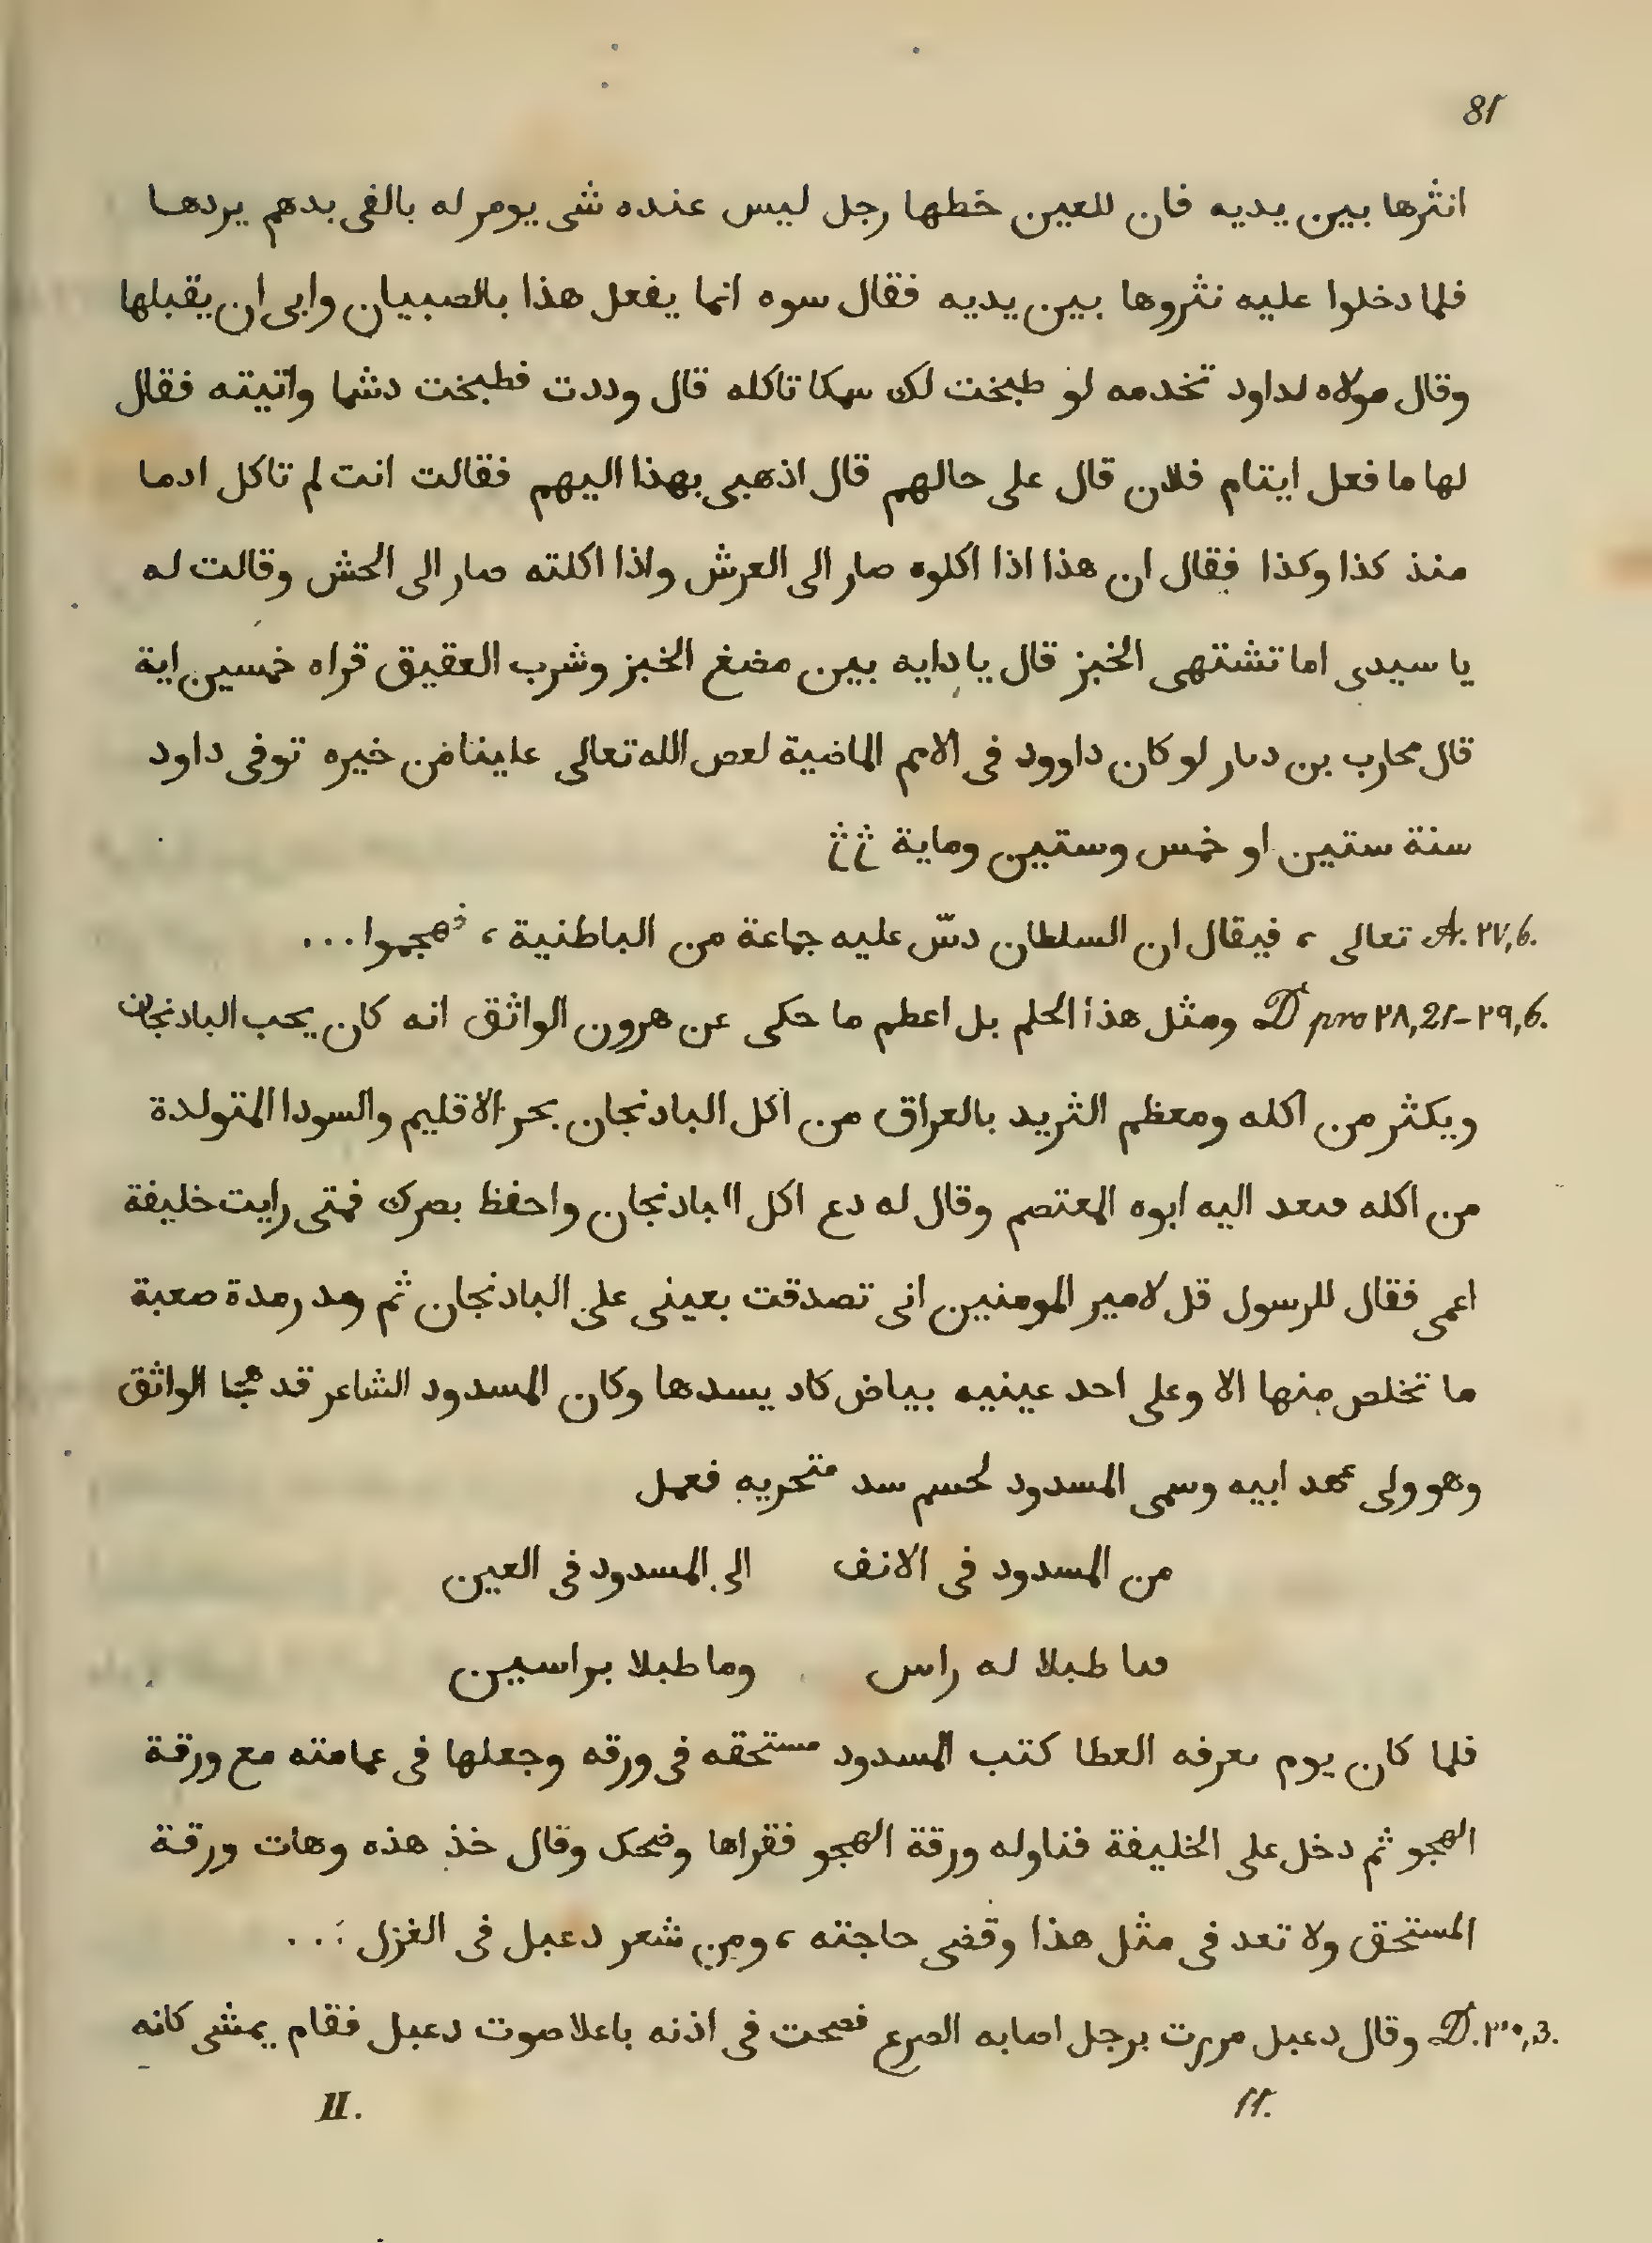 81
انثرها بين يديه فان للعين خطها رجل ليس عنده شى يومر له بالفى بدهم يردها
فلما دخلوا عليه نثروها بين يديه فقال سوه انما يفعل هذا بالصبيان وابى ان يقبلها
وقال مولاه لداود تخدمه لو طبخت لك سمكا تاكله قال وددت فطبخت دشما واتيته فقال
لها ما فعل ايتام فلان قال على حالهم قال اذهبى بهذا اليهم فقالت انت لم تاكل ادما
منذ كذا وكذا فقال ان هذا اذا اكلوه صار الى العرش واذا اكلته صار الى الحش وقالت له
يا سيدى اما تشتهى الخبز قال يا دايه بين مضغ الخبز وشرب العقيق قراه خمسين اية
قال محارب بن دىار لو كان داوود فى الامم الماضية لعص الله تعالى علينا من خيره توفى داود
سنة ستين او خمس وستين وماية
A. ٢٧,6. تعالى ، فيقال ان السلطان دسّ عليه جماعة من الباطنية ، فهجموا ...
D pro ٢٨,21–٢٩,6. ومثل هذا الحلم بل اعطم ما حكى عن هرون الواثق انه كان يحب البادنجان
ويكثر من اكله ومعظم الثريد بالعراق من اكل البادنجان بحر الاقليم والسودا المتولدة
من اكله فىعد اليه ابوه المعتصم وقال له دع اكل البادنجان واحفظ بصرك فمتى رايت خليفة
اعمى فقال للرسول قل لامير المومنين انى تصدقت بعينى على البادنجان ثم رمد رمدة صعبة
ما تخلص منها الا وعلى احد عينيه بياض كاد يسدها وكان المسدود الشاعر قد هجا الواثق
وهو ولى عهد ابيه وسمى المسدود لحسم سد منحريه فعمل
من المسدود فى الانف الى المسدود فى العين
فىا طبلا له راس وما طبلا براسين
فلما كان يوم ىعرفه العطا كتب المسدود مستحقه فى ورقه وجعلها فى عمامته مع ورقة
الهجو ثم دخل على الخليفة فناوله ورقة الهجو فقراها وضحك وقال خذ هذه وهات ورقة
المستحق ولا تعد فى مثل هذا وقضى حاجته ، ومن شعر دعبل فى الغزل : ..
D. ٣٠,3. وقال دعبل مررت برجل اصابه الصرع فصحت فى اذنه باعلا صوت دعبل فقام يمشى كانه
II. 11.